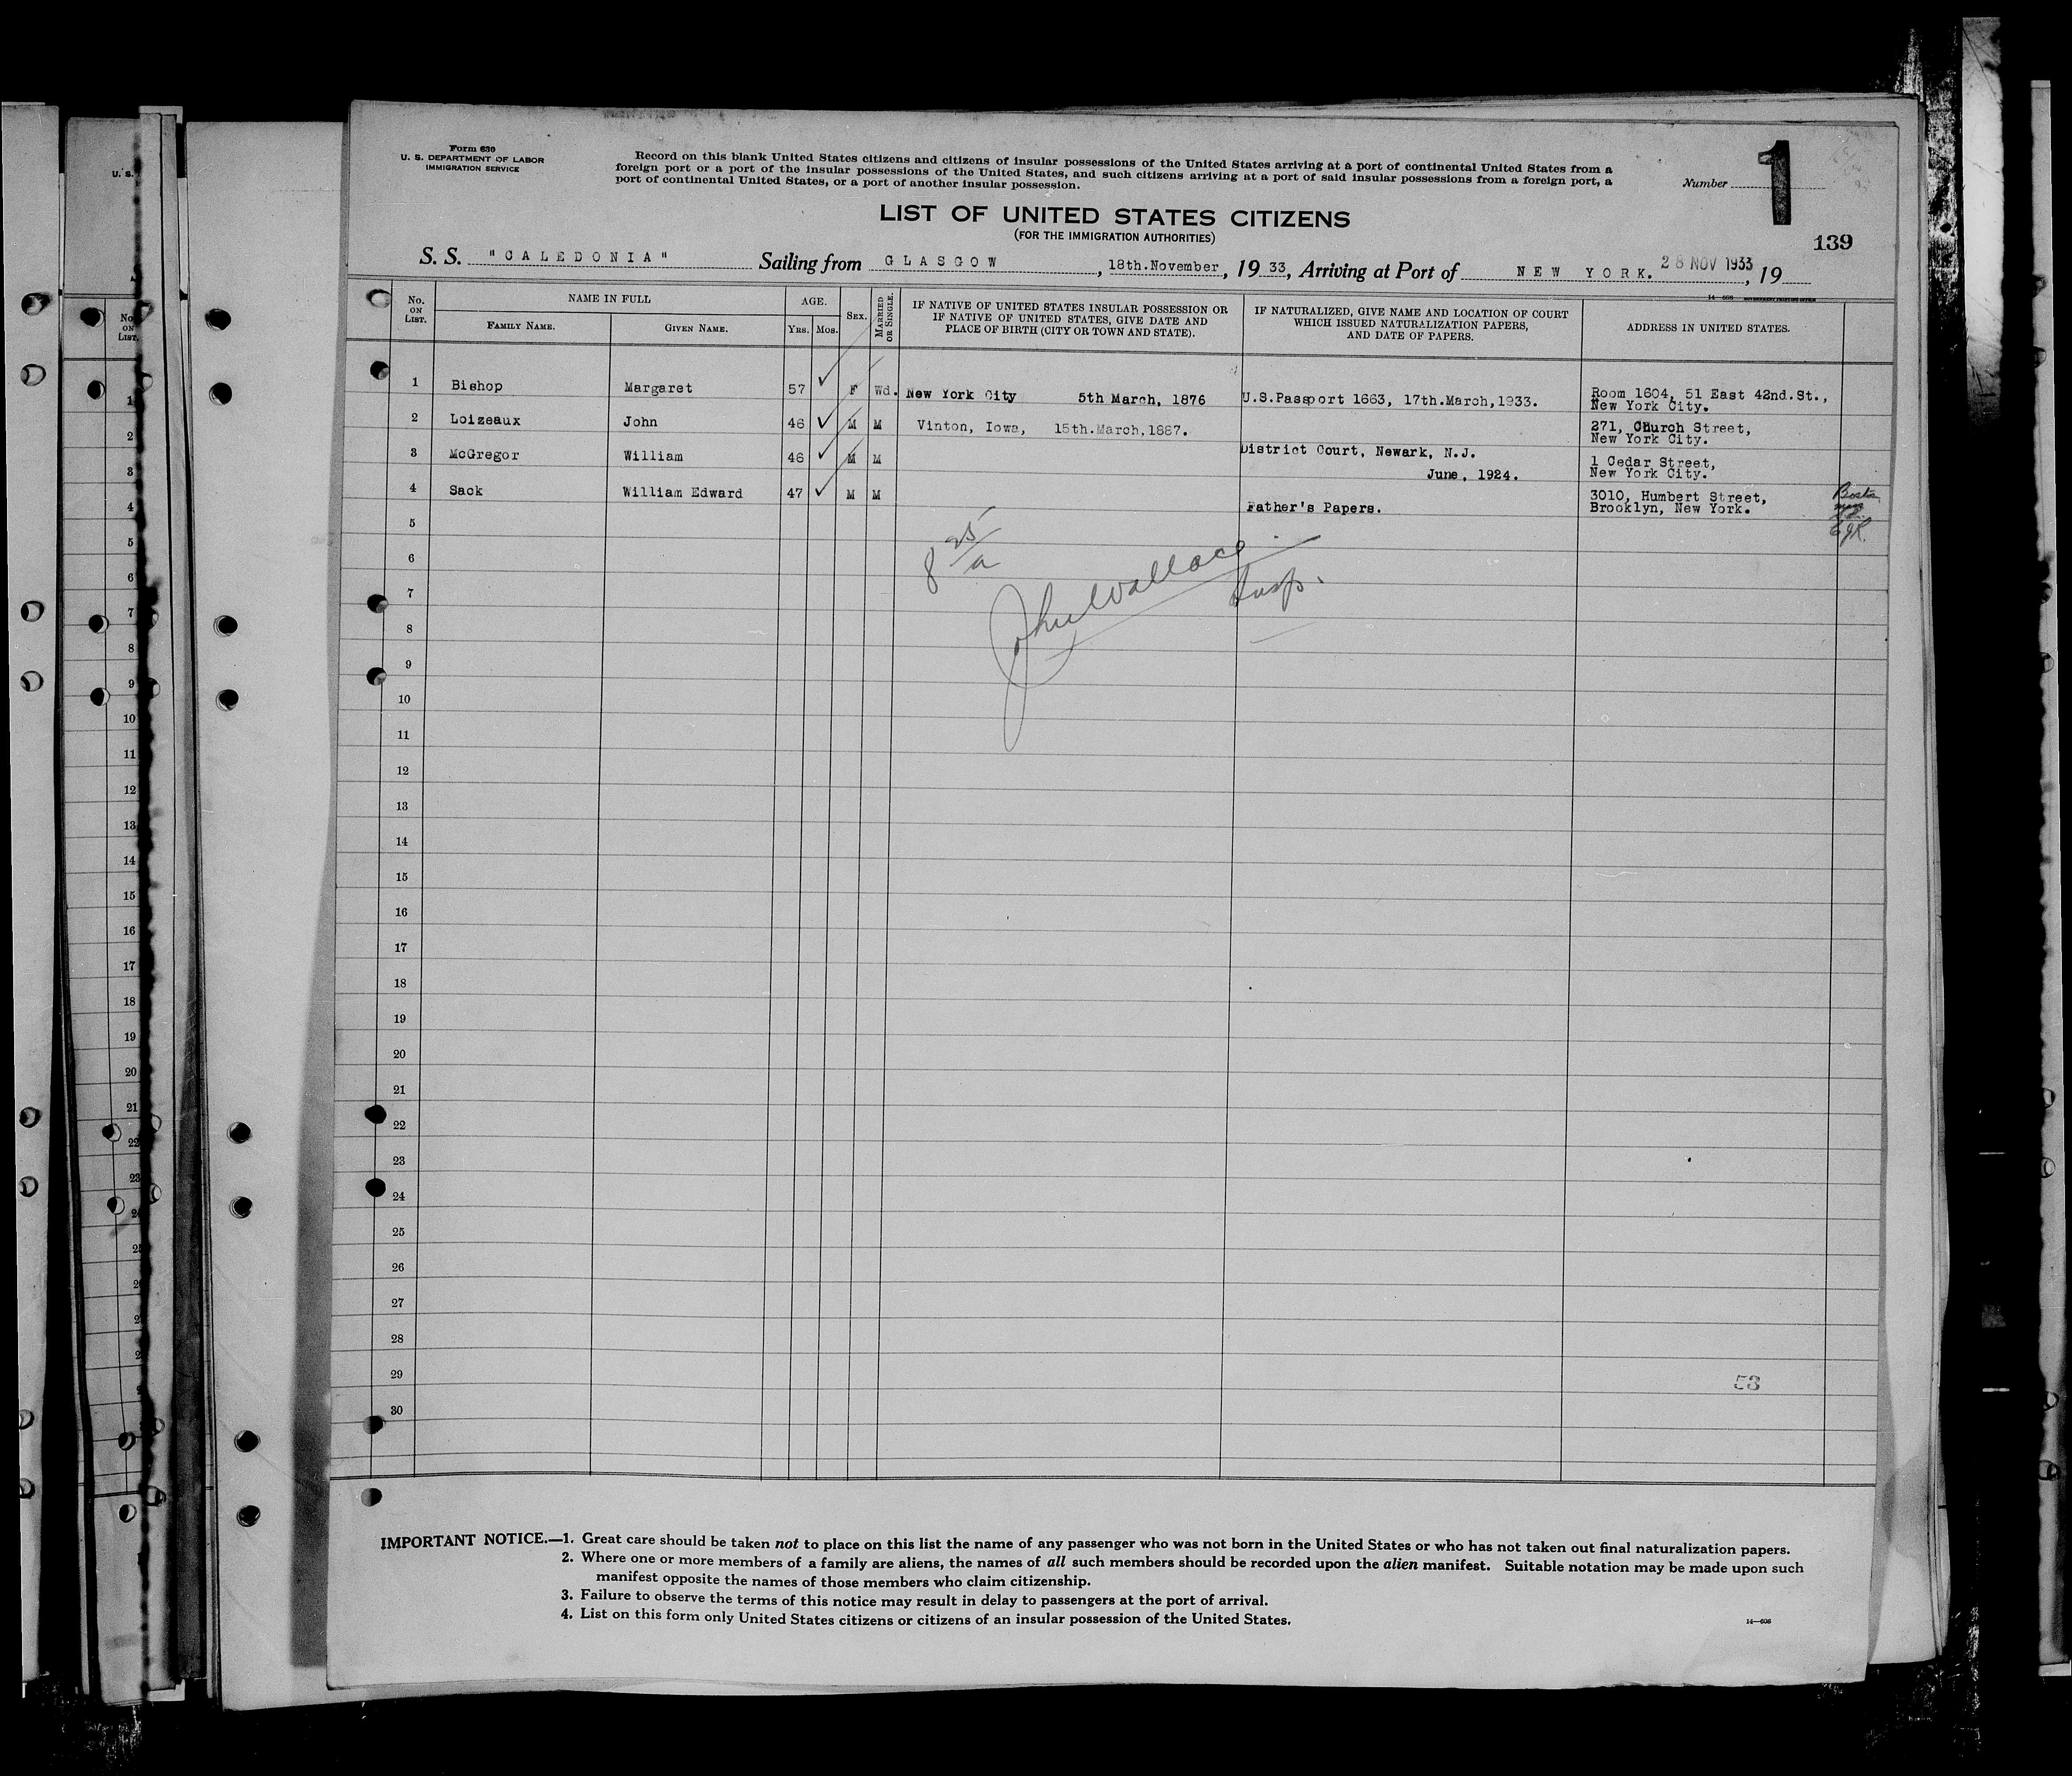 Form 630
U. S. DEPARTMENT OF LABOR
IMMIGRATION SERVICE
Record on this blank United States citizens and citizens of insular possessions of the United States arriving at a port of continental United States from a
foreign port or a port of the insular possessions of the United States, and such citizens arriving at a port of said insular possessions from a foreign port, a
port of continental United States, or a port of another insular possession.
Number 1
LIST OF UNITED STATES CITIZENS
(FOR THE IMMIGRATION AUTHORITIES)
139
S. S. "CALEDONIA" Sailing from GLASGOW, 18th.November, 1933, Arriving at Port of NEW YORK. 28 NOV 1933, 19
No. ON LIST. NAME IN FULL AGE. SEX. MARRIED OR SINGLE. IF NATIVE OF UNITED STATES INSULAR POSSESSION OR
IF NATIVE OF UNITED STATES, GIVE DATE AND
PLACE OF BIRTH (CITY OR TOWN AND STATE).
IF NATURALIZED, GIVE NAME AND LOCATION OF COURT
WHICH ISSUED NATURALIZATION PAPERS,
AND DATE OF PAPERS.
ADDRESS IN UNITED STATES.
FAMILY NAME. GIVEN NAME. YRS. MOS.
1 Bishop Margaret 57 ✓ F Wd. New York City 5th March, 1876 U.S.Passport 1663, 17th.March,1933. Room 1604, 51 East 42nd.St.,
New York City.
2 Loizeaux John 46 ✓ M M Vinton, Iowa, 15th.March,1887. 271, Church Street,
New York City.
3 McGregor William 46 ✓ M M District Court, Newark, N.J.
June, 1924.
1 Cedar Street,
New York City.
4 Sack William Edward 47 ✓ M M Father's Papers. 3010, Humbert Street,
Brooklyn, New York.
5
6
7
8
9
10
11
12
13
14
15
16
17
18
19
20
21
22
23
24
25
26
27
28
29
30
8 25/a
John Wallace
Insp.
53
IMPORTANT NOTICE.—1. Great care should be taken not to place on this list the name of any passenger who was not born in the United States or who has not taken out final naturalization papers.
2. Where one or more members of a family are aliens, the names of all such members should be recorded upon the alien manifest. Suitable notation may be made upon such
manifest opposite the names of those members who claim citizenship.
3. Failure to observe the terms of this notice may result in delay to passengers at the port of arrival.
4. List on this form only United States citizens or citizens of an insular possession of the United States.
14—608